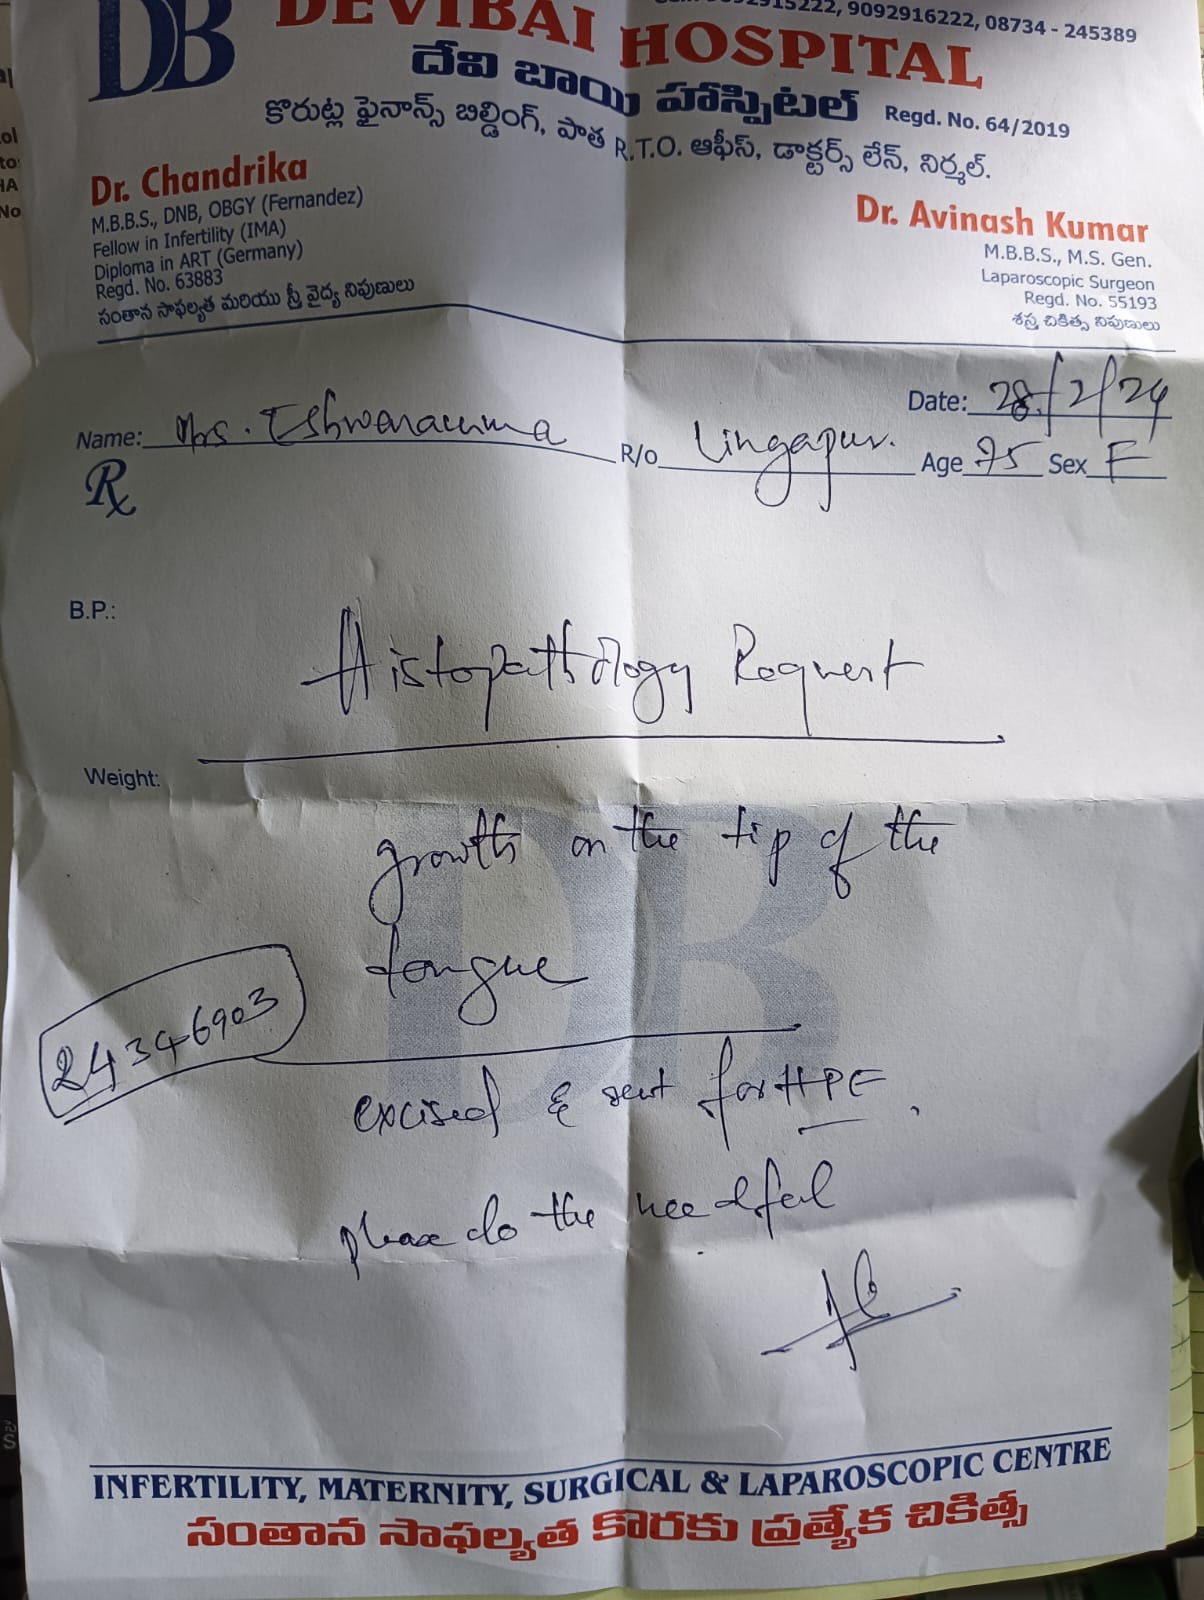 DB DEVIBAI HOSPITAL
9092916222, 08734 - 245389
దేవి బాయి హాస్పిటల్ Regd. No. 64/2019
కొరుట్ల ఫైనాన్స్ బిల్డింగ్, పాత R.T.O. ఆఫీస్, డాక్టర్స్ లేన్, నిర్మల్.
Dr. Chandrika
M.B.B.S., DNB, OBGY (Fernandez)
Fellow in Infertility (IMA)
Diploma in ART (Germany)
Regd. No. 63883
సంతాన సాఫల్యత మరియు స్త్రీ వైద్య నిపుణులు
Dr. Avinash Kumar
M.B.B.S., M.S. Gen.
Laparoscopic Surgeon
Regd. No. 55193
శస్త్ర చికిత్స నిపుణులు
Date: 28/2/24
Name: Mrs. Eshwaramma R/o Lingapur. Age 75 Sex F
Rx
B.P.:
Histopathology Request
Weight:
growth on the tip of the
tongue
24346903
excised & sent for HPE.
please do the needful
INFERTILITY, MATERNITY, SURGICAL & LAPAROSCOPIC CENTRE
సంతాన సాఫల్యత కొరకు ప్రత్యేక చికిత్స